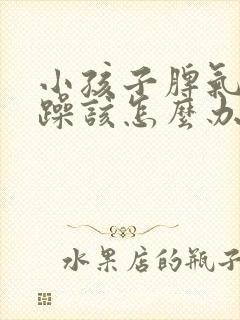 小孩子脾氣
躁該怎麼办
水果店的瓶子